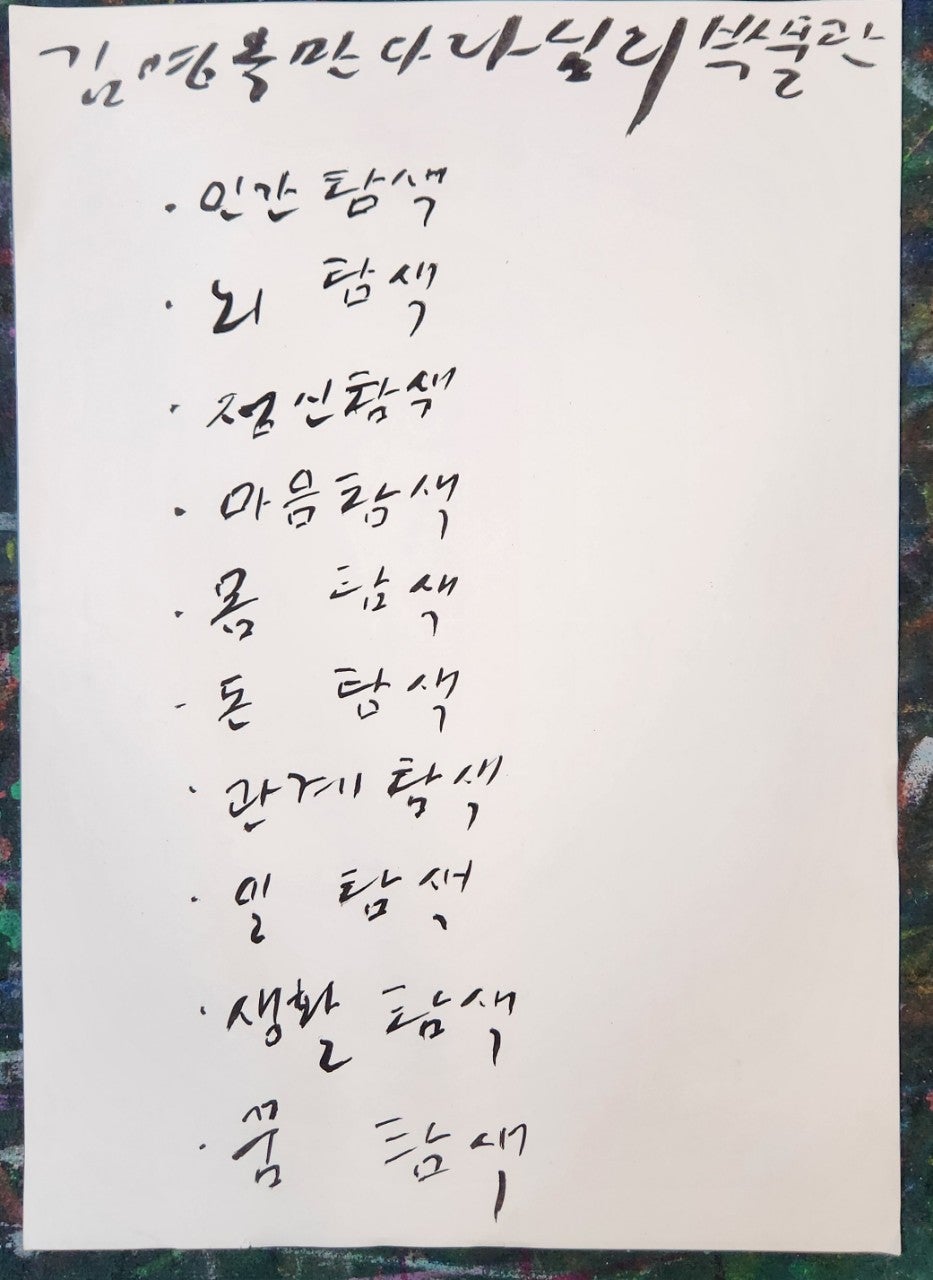 김명옥만다라심리박물관
· 인간 탐색
· 뇌 탐색
· 정신 탐색
· 마음 탐색
· 몸 탐색
· 돈 탐색
· 관계 탐색
· 일 탐색
· 생활 탐색
· 꿈 탐색